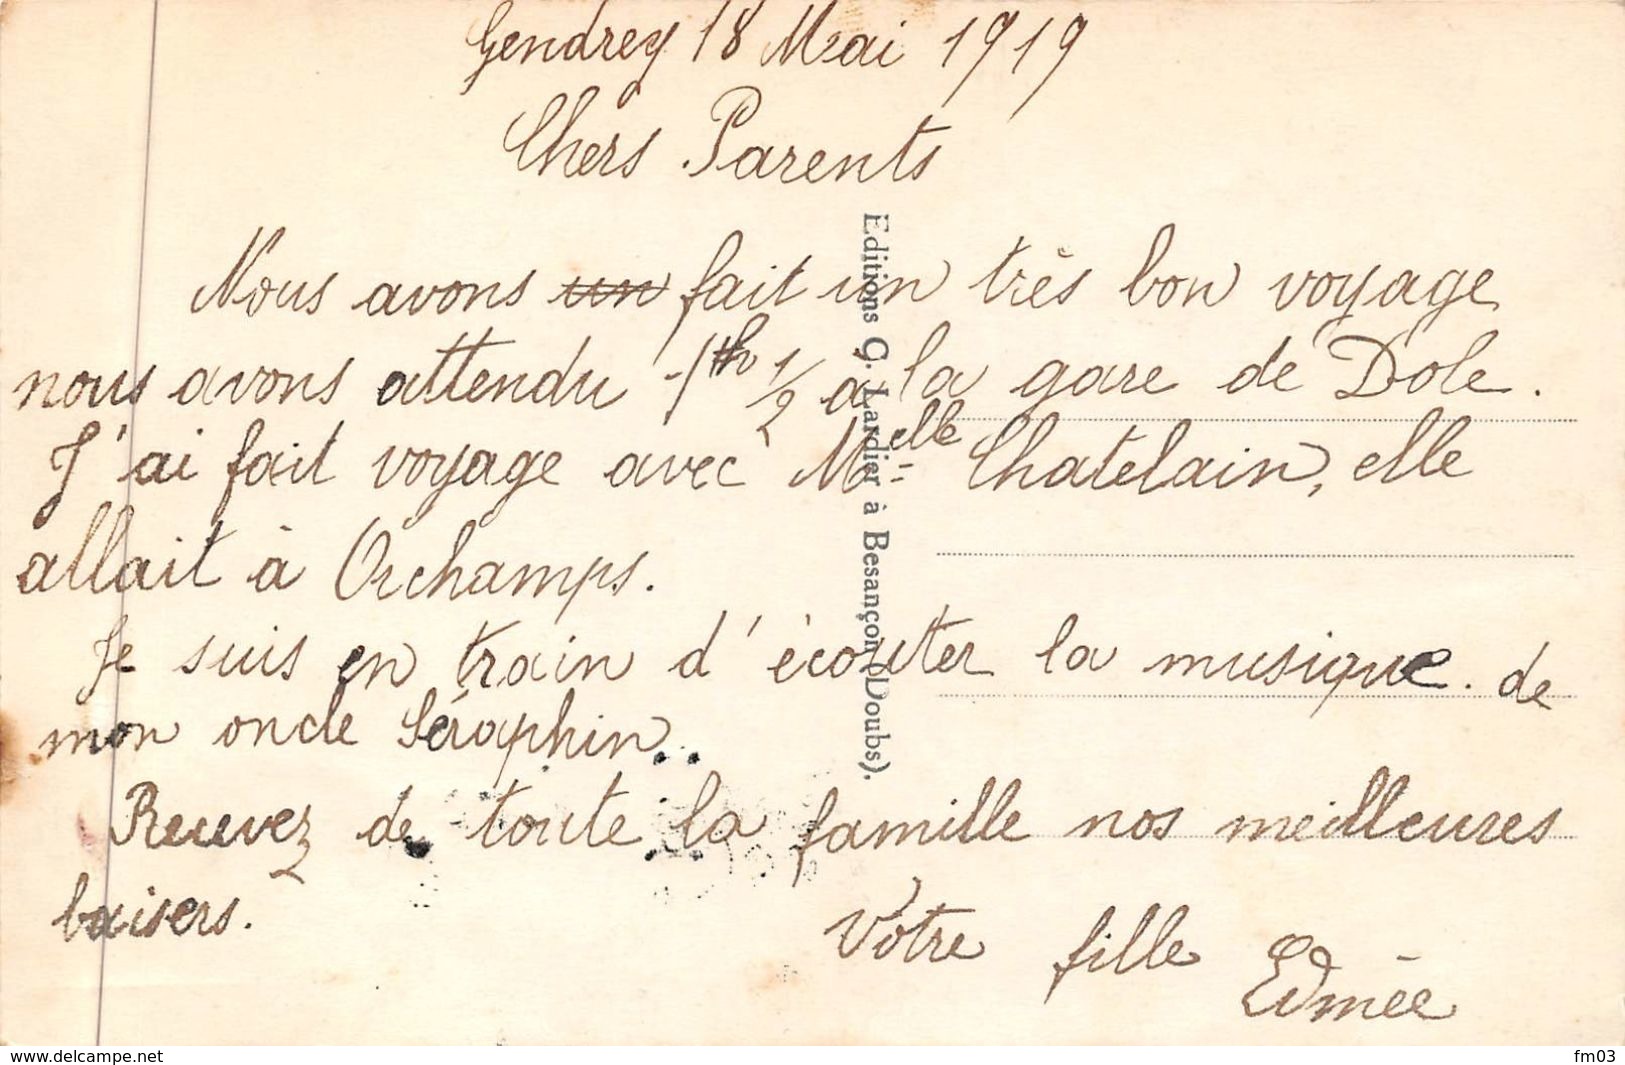 Gendrey 18 Mai 1919
Chers Parents
Nous avons ~~un~~ fait un très bon voyage
nous avons attendu 1h 1/2 à la gare de Dole.
J'ai fait voyage avec Melle Chatelain, elle
allait à Orchamps.
Je suis en train d'écouter la musique. de
mon oncle Séraphin..
Recevez de toute la famille nos meilleures
baisers.
Votre fille Edmée
Editions C. Lardier à Besançon (Doubs).
www.delcampe.net
fm03